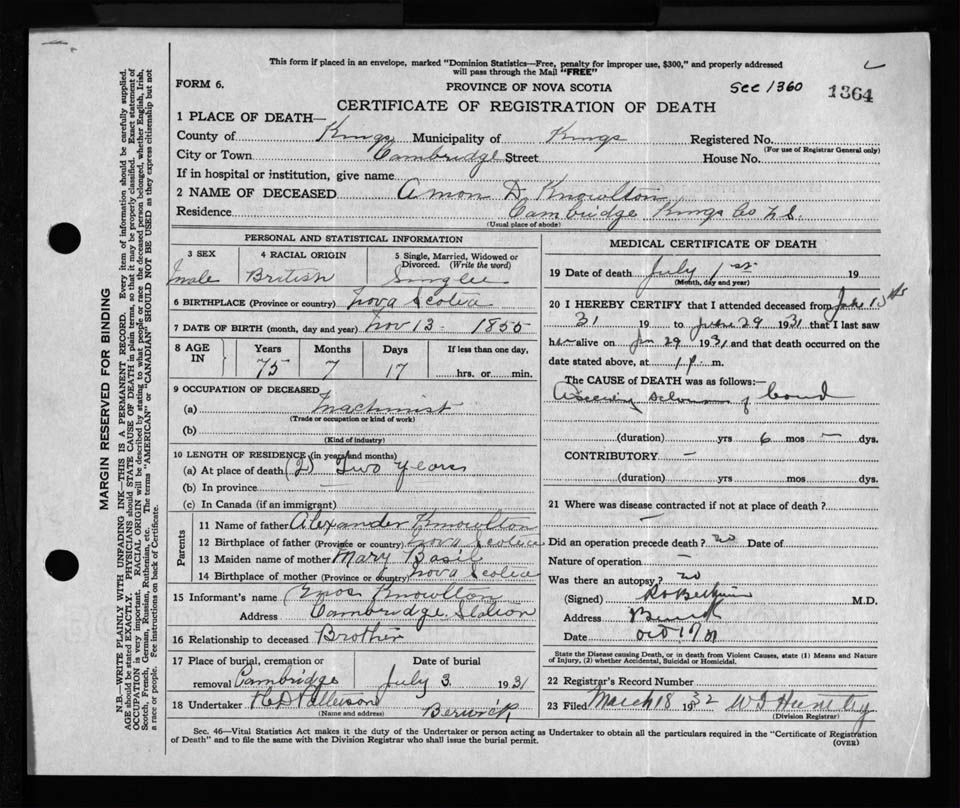 This form if placed in an envelope, marked "Dominion Statistics—Free, penalty for improper use, $300," and properly addressed
will pass through the Mail "FREE"
FORM 6.
PROVINCE OF NOVA SCOTIA
See 1360
1364
CERTIFICATE OF REGISTRATION OF DEATH
1 PLACE OF DEATH—
County of Kings Municipality of Kings Registered No.
(For use of Registrar General only)
City or Town Cambridge Street House No.
If in hospital or institution, give name
2 NAME OF DECEASED Amon D. Knowlton
Residence Cambridge Kings Co N.S.
(Usual place of abode)
PERSONAL AND STATISTICAL INFORMATION
3 SEX
Male
4 RACIAL ORIGIN
British
5 Single, Married, Widowed or
Divorced. (Write the word)
Single
6 BIRTHPLACE (Province or country) Nova Scotia
7 DATE OF BIRTH (month, day and year) Nov 13 1855
8 AGE IN
Years Months Days If less than one day,
75 7 17 hrs. or min.
9 OCCUPATION OF DECEASED
(a) Machinist
(Trade or occupation or kind of work)
(b)
(Kind of industry)
10 LENGTH OF RESIDENCE (in years and months)
(a) At place of death (2) Two years
(b) In province
(c) In Canada (if an immigrant)
Parents
11 Name of father Alexander Knowlton
12 Birthplace of father (Province or country) Nova Scotia
13 Maiden name of mother Mary Basil
14 Birthplace of mother (Province or country) Nova Scotia
15 Informant's name Enos Knowlton
Address Cambridge Station
16 Relationship to deceased Brother
17 Place of burial, cremation or Date of burial
removal Cambridge July 3 1931
18 Undertaker H D Patterson Berwick
(Name and address)
MEDICAL CERTIFICATE OF DEATH
19 Date of death July 1st 19
(Month, day and year)
20 I HEREBY CERTIFY that I attended deceased from 15th
31 19 to June 29 1931 that I last saw
h alive on Jun 29 1931 and that death occurred on the
date stated above, at 1 p. m.
The CAUSE OF DEATH was as follows:—
of Cord
(duration) yrs 6 mos — dys.
CONTRIBUTORY —
(duration) yrs mos dys.
21 Where was disease contracted if not at place of death?
—
Did an operation precede death? no Date of
Nature of operation —
Was there an autopsy? no
(Signed) M.D.
Address
Date Oct 17/31
State the Disease causing Death, or in death from Violent Causes, state (1) Means and Nature
of Injury, (2) whether Accidental, Suicidal or Homicidal.
22 Registrar's Record Number
23 Filed March 18 1932 W S Huntley
(Division Registrar)
Sec. 46—Vital Statistics Act makes it the duty of the Undertaker or person acting as Undertaker to obtain all the particulars required in the "Certificate of Registration
of Death" and to file the same with the Division Registrar who shall issue the burial permit.
(OVER)
MARGIN RESERVED FOR BINDING
N.B.—WRITE PLAINLY WITH UNFADING INK—THIS IS A PERMANENT RECORD. Every item of information should be carefully supplied.
AGE should be stated EXACTLY. PHYSICIANS should STATE CAUSE OF DEATH in plain terms, so that it may be properly classified. Exact statement of
OCCUPATION is very important. RACIAL ORIGIN will be described by stating to what people or race the deceased person belonged, whether English, Irish,
Scotch, French, German, Russian, Ruthenian, etc. The terms "AMERICAN" or "CANADIAN" SHOULD NOT BE USED as they express citizenship but not
a race or people. See instructions on back of Certificate.